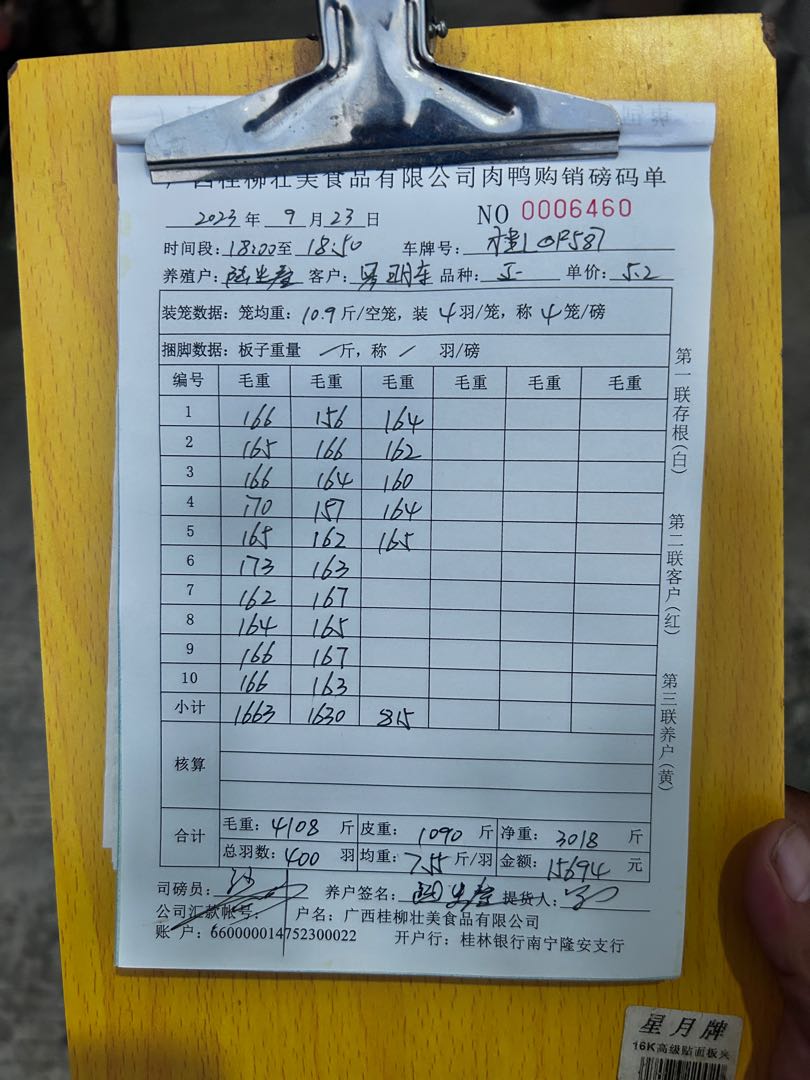 广西桂柳壮美食品有限公司肉鸭购销磅码单
2023年 9月23日 NO 0006460
时间段：18:00至 18:50 车牌号：
养殖户： 客户： 品种： 单价：5.2
装笼数据：笼均重：10.9斤/空笼，装 4羽/笼，称 4笼/磅
捆脚数据：板子重量 / 斤，称 / 羽/磅
编号 毛重 毛重 毛重 毛重 毛重 毛重
1 166 156 164
2 165 166 162
3 166 164 160
4 170 157 164
5 165 162 165
6 173 163
7 162 167
8 164 165
9 166 167
10 166 163
小计 1663 1630 815
核算
合计 毛重：4108 斤 皮重：1090 斤 净重：3018 斤
总羽数：400 羽 均重：7.55 斤/羽 金额：15694 元
司磅员： 养户签名： 提货人：
公司汇款帐号： 户名：广西桂柳壮美食品有限公司
账 户：660000014752300022 开户行：桂林银行南宁隆安支行
第一联存根(白)
第二联客户(红)
第三联养户(黄)
星月牌
16K高级贴面板夹